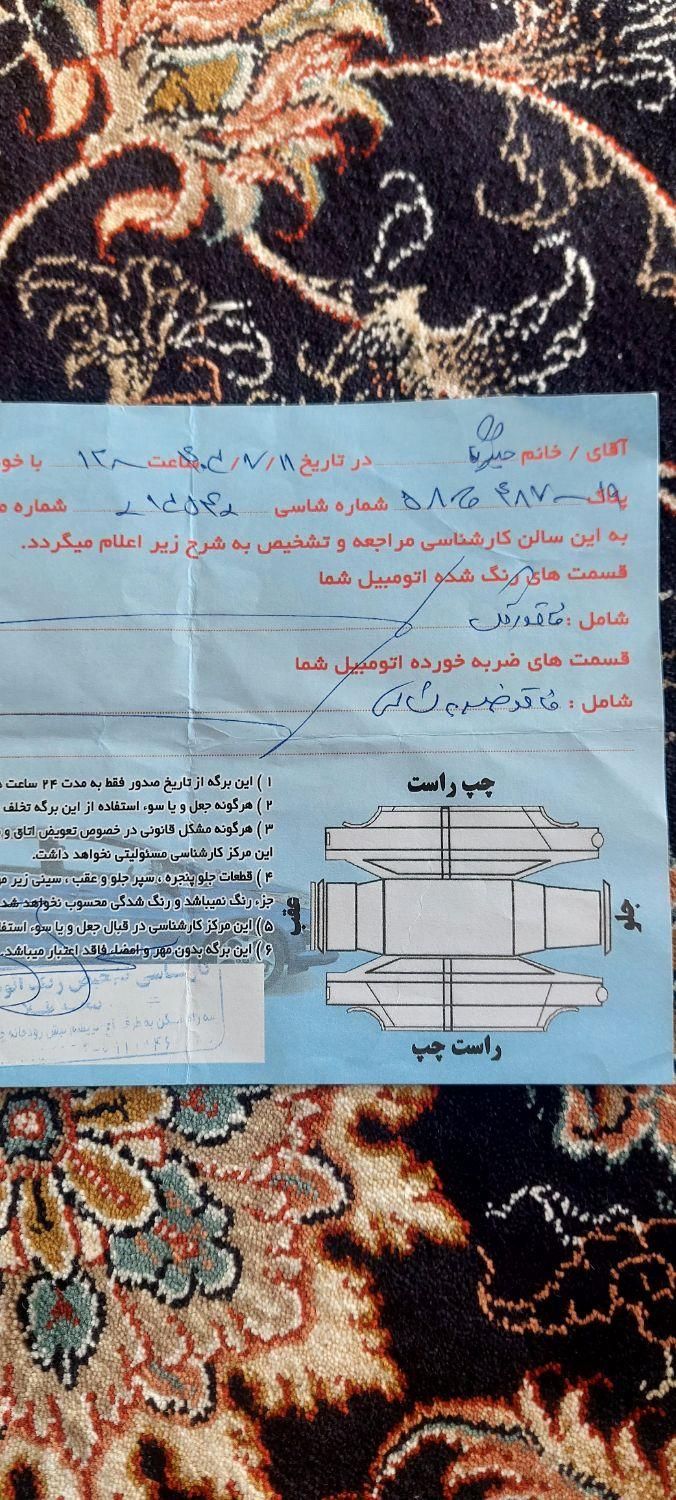 آقای / خانم در تاریخ ۱۱/۷/ ساعت با خو
پلاک ۵۸ ۴۸۷ شماره شاسی شماره م
به این سالن کارشناسی مراجعه و تشخیص به شرح زیر اعلام میگردد.
قسمت های رنگ شده اتومبیل شما
شامل : فاقد رنگ
قسمت های ضربه خورده اتومبیل شما
شامل : فاقد ضربه شاسی
چپ راست
جلو
عقب
راست چپ
۱ ) این برگه از تاریخ صدور فقط به مدت ۲۴ ساعت
۲ ) هرگونه جعل و یا سوء استفاده از این برگه تخلف
۳ ) هرگونه مشکل قانونی در خصوص تعویض اتاق و
این مرکز کارشناسی مسئولیتی نخواهد داشت.
۴ ) قطعات جلو پنجره ، سپر جلو و عقب ، سینی زیر
جزء رنگ نمیباشد و رنگ شدگی محسوب نخواهد شد
۵ ) این مرکز کارشناسی در قبال جعل و یا سوء استفا
۶ ) این برگه بدون مهر و امضاء فاقد اعتبار میباشد.
تشخیص رنگ